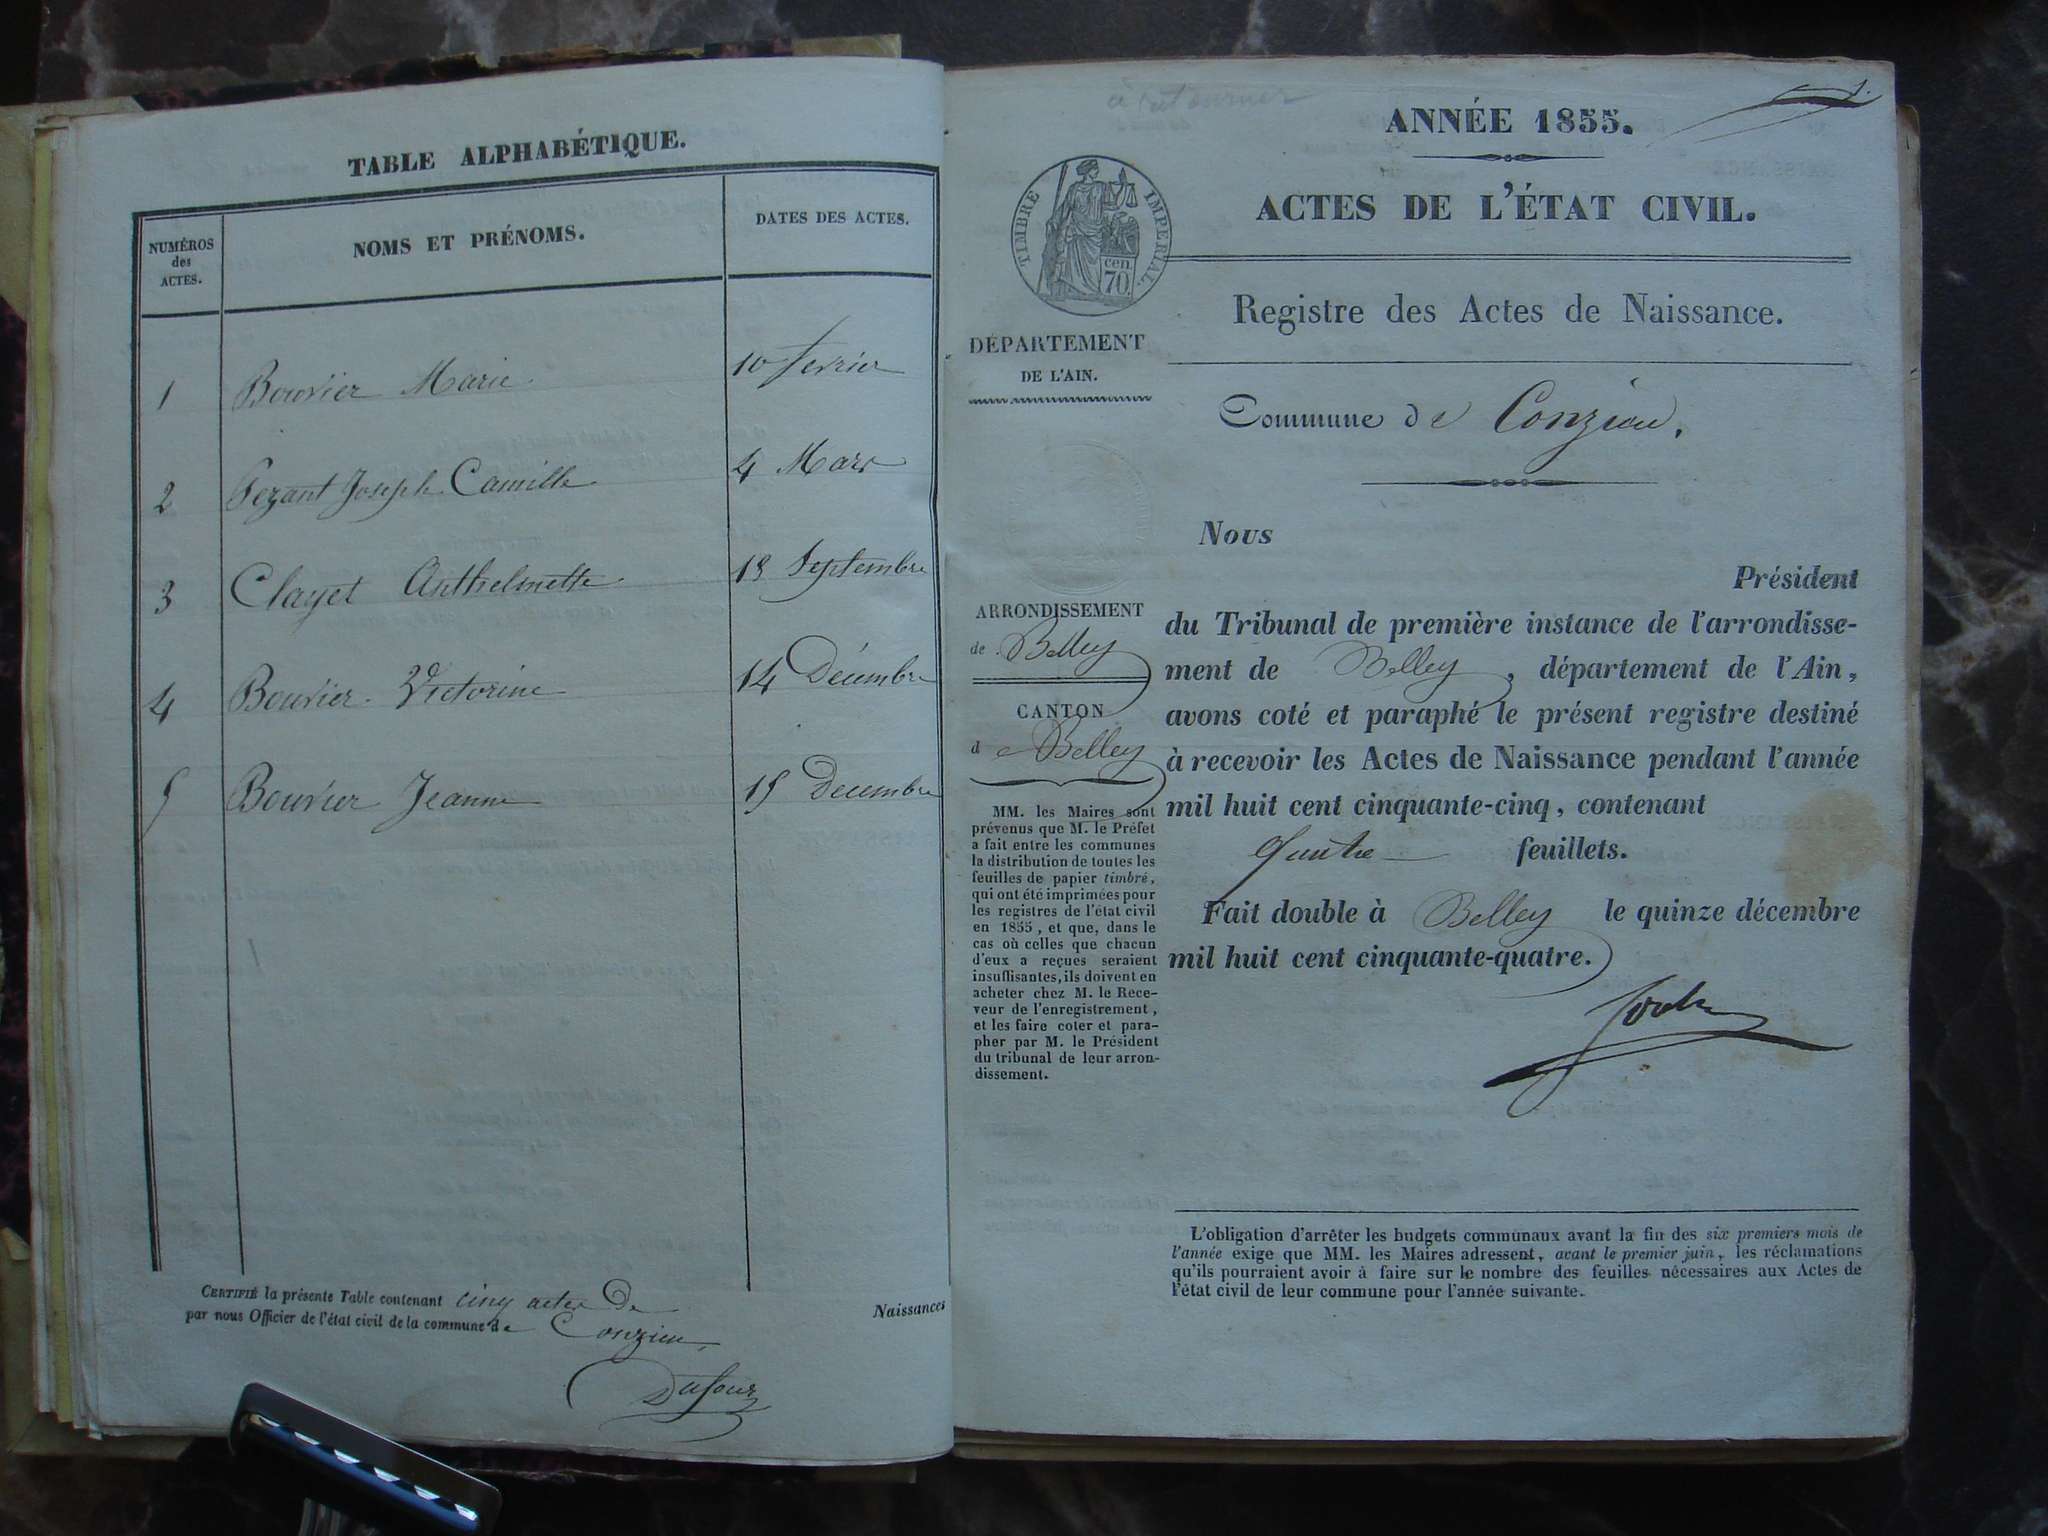 TABLE ALPHABÉTIQUE.
NUMÉROS
des
ACTES.
NOMS ET PRÉNOMS.
DATES DES ACTES.
1 Bouvier Marie 10 fevrier
2 Pezant Joseph Camille 4 Mars
3 Clayet Anthelmette 18 Septembre
4 Bouvier Victorine 14 Décembre
5 Bouvier Jeanne 15 Decembre
CERTIFIÉ la présente Table contenant cinq actes De
par nous Officier de l'état civil de la commune de Conzieu,
Naissances
Dufour
1.
ANNÉE 1855.
ACTES DE L'ÉTAT CIVIL.
TIMBRE IMPERIAL.
cen.
70.
Registre des Actes de Naissance.
DÉPARTEMENT
DE L'AIN.
Commune de Conzieu.
ARRONDISSEMENT
de Belley
CANTON
de Belley
MM. les Maires sont
prévenus que M. le Préfet
a fait entre les communes
la distribution de toutes les
feuilles de papier timbré,
qui ont été imprimées pour
les registres de l'état civil
en 1855, et que, dans le
cas où celles que chacun
d'eux a reçues seraient
insuffisantes, ils doivent en
acheter chez M. le Rece-
veur de l'enregistrement,
et les faire coter et para-
pher par M. le Président
du tribunal de leur arron-
dissement.
Nous
Président
du Tribunal de première instance de l'arrondisse-
ment de Belley, département de l'Ain,
avons coté et paraphé le présent registre destiné
à recevoir les Actes de Naissance pendant l'année
mil huit cent cinquante-cinq, contenant
quatre feuillets.
Fait double à Belley le quinze décembre
mil huit cent cinquante-quatre.
L'obligation d'arrêter les budgets communaux avant la fin des six premiers mois de
l'année exige que MM. les Maires adressent, avant le premier juin, les réclamations
qu'ils pourraient avoir à faire sur le nombre des feuilles nécessaires aux Actes de
l'état civil de leur commune pour l'année suivante.